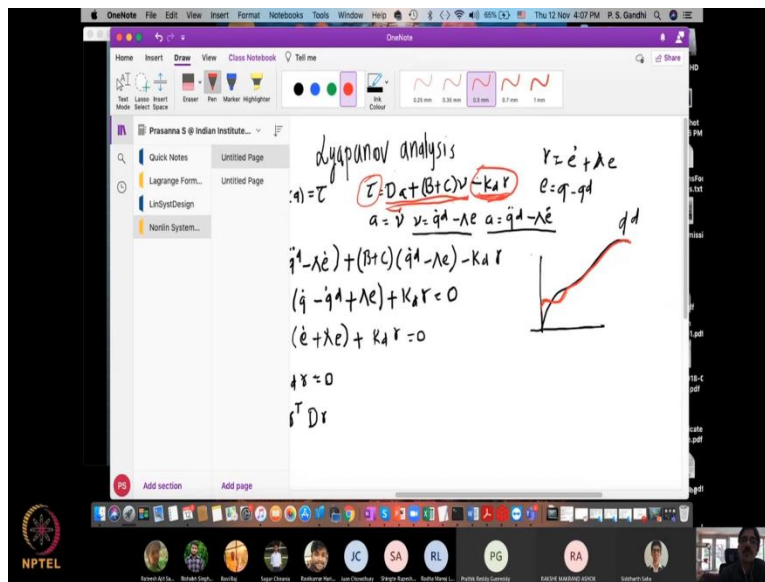 OneNote File Edit View Insert Format Notebooks Tools Window Help 65% Thu 12 Nov 4:07 PM P. S. Gandhi
OneNote
Home Insert Draw View Class Notebook Tell me Share
Text Mode Lasso Select Insert Space Eraser Pen Marker Highlighter Ink Colour 0.25 mm 0.35 mm 0.5 mm 0.7 mm 1 mm
Prasanna S @ Indian Institute...
Quick Notes
Lagrange Form...
LinSystDesign
Nonlin System...
Untitled Page
Untitled Page
Lyapanov analysis
(q) = τ τ = Da + (B+C)ν - Kd r
r = ė + Λe
e = q - qd
a = ν̇ ν = q̇d - Λe a = q̈d - Λė
q̈d - Λė) + (B+C)(q̇d - Λe) - Kd r
qd
(q̇ - q̇d + Λe) + Kd r = 0
(ė + Λe) + Kd r = 0
d r = 0
r^T D r
PS Add section Add page
NPTEL
JC SA RL PG RA
Rateesh Ajit Sa... Rishabh Singh... Ravi Raj Sagar Chwania Ravikumar Hari... Juan Chowdhury Shingte Rupesh... Radha Manoj L... Pruthik Reddy Gunreddy RAKSHE MAKRAND ASHOK Siddharth Saha